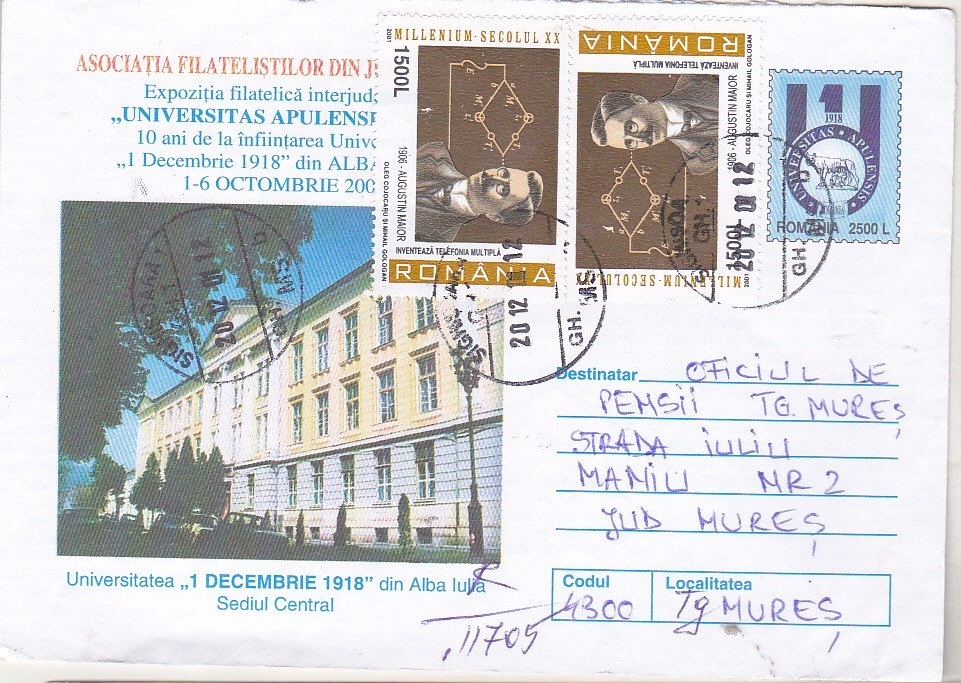 ASOCIAȚIA FILATELIȘTILOR DIN
Expoziția filatelică interjud
„UNIVERSITAS APULENS
10 ani de la înființarea Unive
„1 Decembrie 1918” din ALBA
1-6 OCTOMBRIE 200
MILLENIUM-SECOLUL XX
2001
1500L
1906 - AUGUSTIN MAIOR
OLEG COJOCARU SI MIHAIL GOLOGAN
INVENTEAZĂ TELEFONIA MULTIPLĂ
ROMÂNIA
ROMÂNIA
INVENTEAZĂ TELEFONIA MULTIPLĂ
1906 - AUGUSTIN MAIOR
OLEG COJOCARU SI MIHAIL GOLOGAN
1500L
2001
MILLENIUM-SECOLUL
1
1918
UNIVERSITAS APULENSIS
ROMÂNIA 2500 L
20 12 01 12
GH. MS
20 12 01 12
GH. MS
20 12 01 12
GH.
Destinatar OFICIUL DE
PEMSII TG. MUREȘ
STRADA IULIU
MANIU NR 2
JUD MUREȘ
Universitatea „1 DECEMBRIE 1918” din Alba Iulia
Sediul Central
Codul 4300
Localitatea Tg MUREȘ
11705